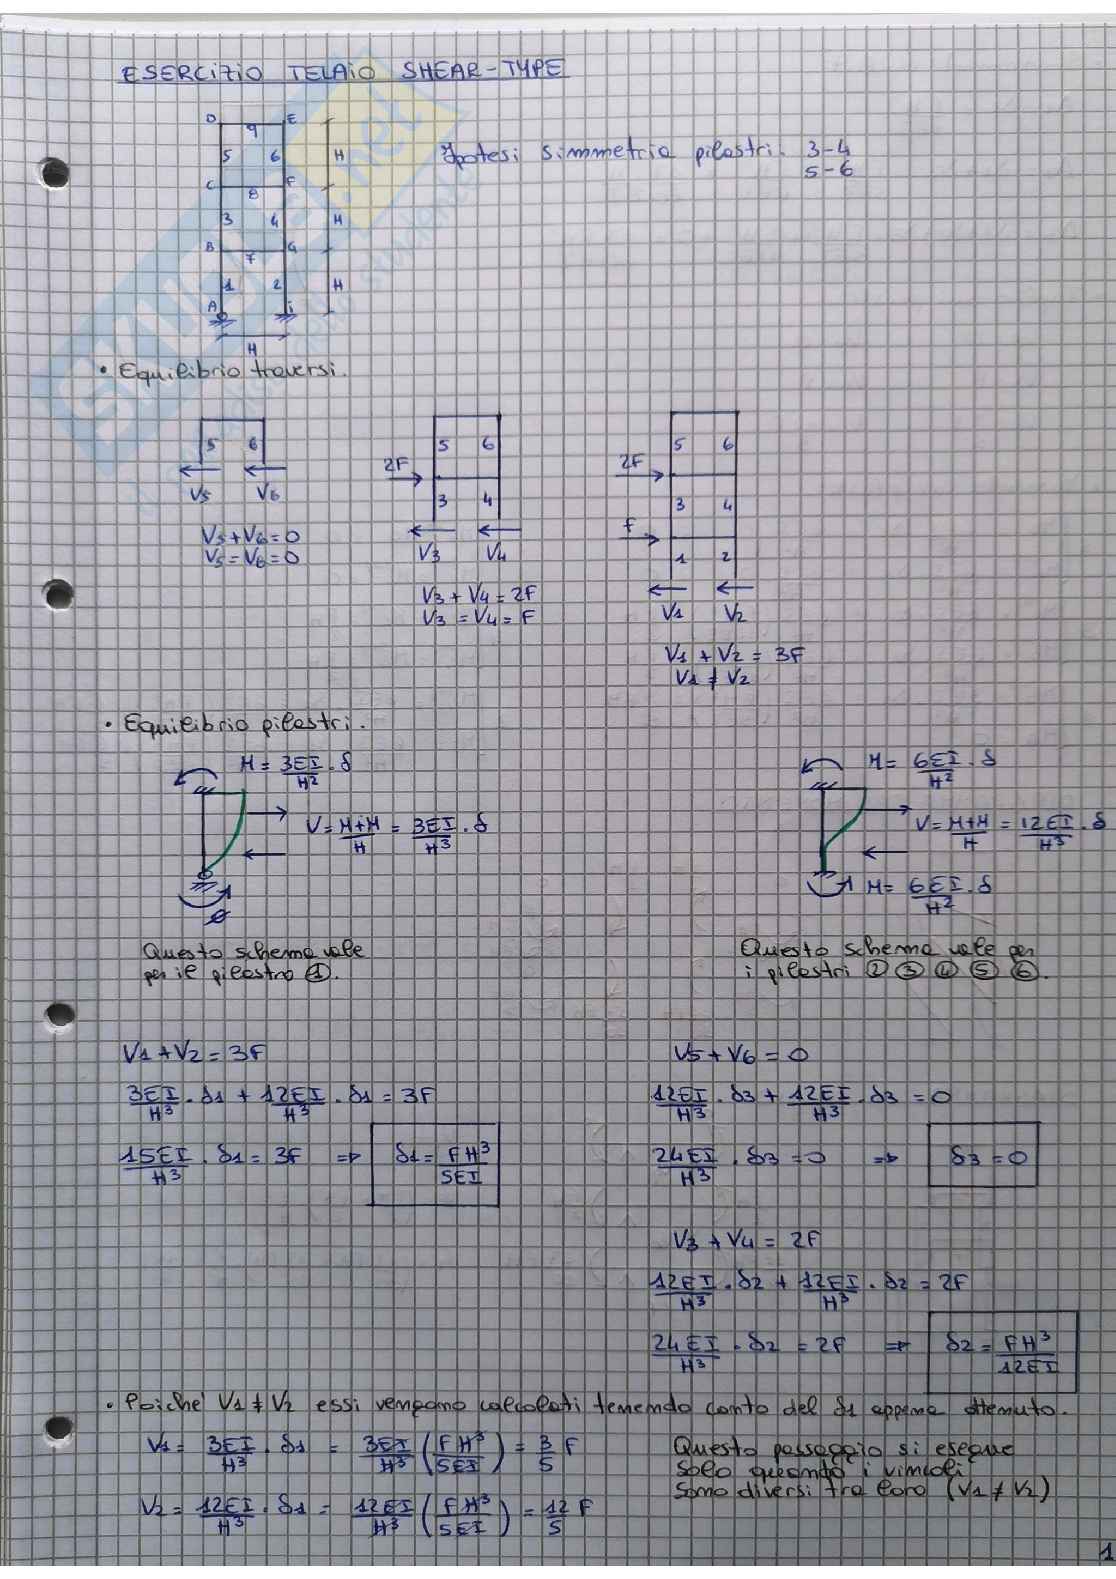 ESERCIZIO TELAIO SHEAR-TYPE
D 9 E
5 6 H
Ipotesi simmetria pilastri. 3-4
5-6
C 8 F
3 4 H
B 7 G
1 2 H
A I
H
• Equilibrio traversi.
5 6
V5 V6
V5+V6=0
V5=V6=0
5 6
2F
3 4
V3 V4
V3 + V4 = 2F
V3 = V4 = F
5 6
2F
3 4
F
1 2
V1 V2
V1 + V2 = 3F
V1 ≠ V2
• Equilibrio pilastri.
M = 3EI/H² · δ
V = M+M/H = 3EI/H³ · δ
ø
Questo schema vale
per il pilastro ①.
M = 6EI/H² · δ
V = M+M/H = 12EI/H³ · δ
M = 6EI/H² · δ
Questo schema vale per
i pilastri ② ③ ④ ⑤ ⑥.
V1 + V2 = 3F
3EI/H³ · δ1 + 12EI/H³ · δ1 = 3F
15EI/H³ · δ1 = 3F ⇒ δ1 = FH³/5EI
V5 + V6 = 0
12EI/H³ · δ3 + 12EI/H³ · δ3 = 0
24EI/H³ · δ3 = 0 ⇒ δ3 = 0
V3 + V4 = 2F
12EI/H³ · δ2 + 12EI/H³ · δ2 = 2F
24EI/H³ · δ2 = 2F ⇒ δ2 = FH³/12EI
• Poiché V1 ≠ V2 essi vengono calcolati tenendo conto del δ1 appena ottenuto.
V1 = 3EI/H³ · δ1 = 3EI/H³ (FH³/5EI) = 3/5 F
V2 = 12EI/H³ · δ1 = 12EI/H³ (FH³/5EI) = 12/5 F
Questo passaggio si esegue
solo quando i vincoli
sono diversi tra loro (V1 ≠ V2)
1
SKUOLA.net